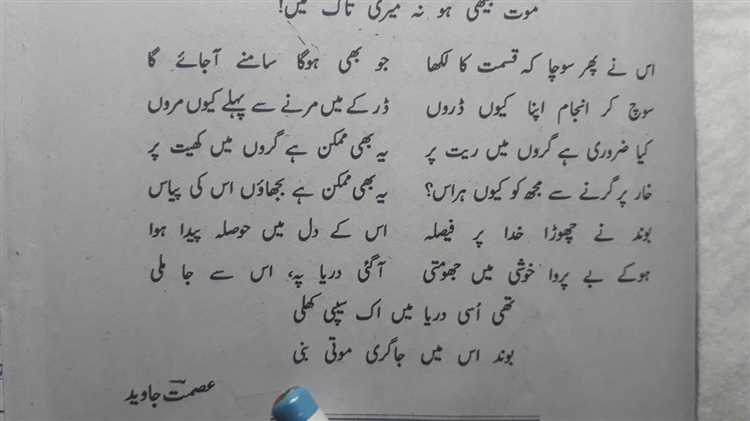 موت بیٹھی ہو نہ میری تاک میں!
اس نے پھر سوچا کہ قسمت کا لکھا جو بھی ہوگا سامنے آجائے گا
سوچ کر انجام اپنا کیوں ڈروں ڈر کے میں مرنے سے پہلے کیوں مروں
کیا ضروری ہے گروں میں ریت پر یہ بھی ممکن ہے گروں میں کھیت پر
خار پر گرنے سے مجھ کو کیوں ہراس؟ یہ بھی ممکن ہے بجھاؤں اس کی پیاس
بوند نے چھوڑا خدا پر فیصلہ اس کے دل میں حوصلہ پیدا ہوا
ہوکے بے پروا خوشی میں جھومتی آگئی دریا پہ، اس سے جا ملی
تھی اُسی دریا میں اک سیپی کھلی
بوند اس میں جاگری موتی بنی
عصمتؔ جاوید